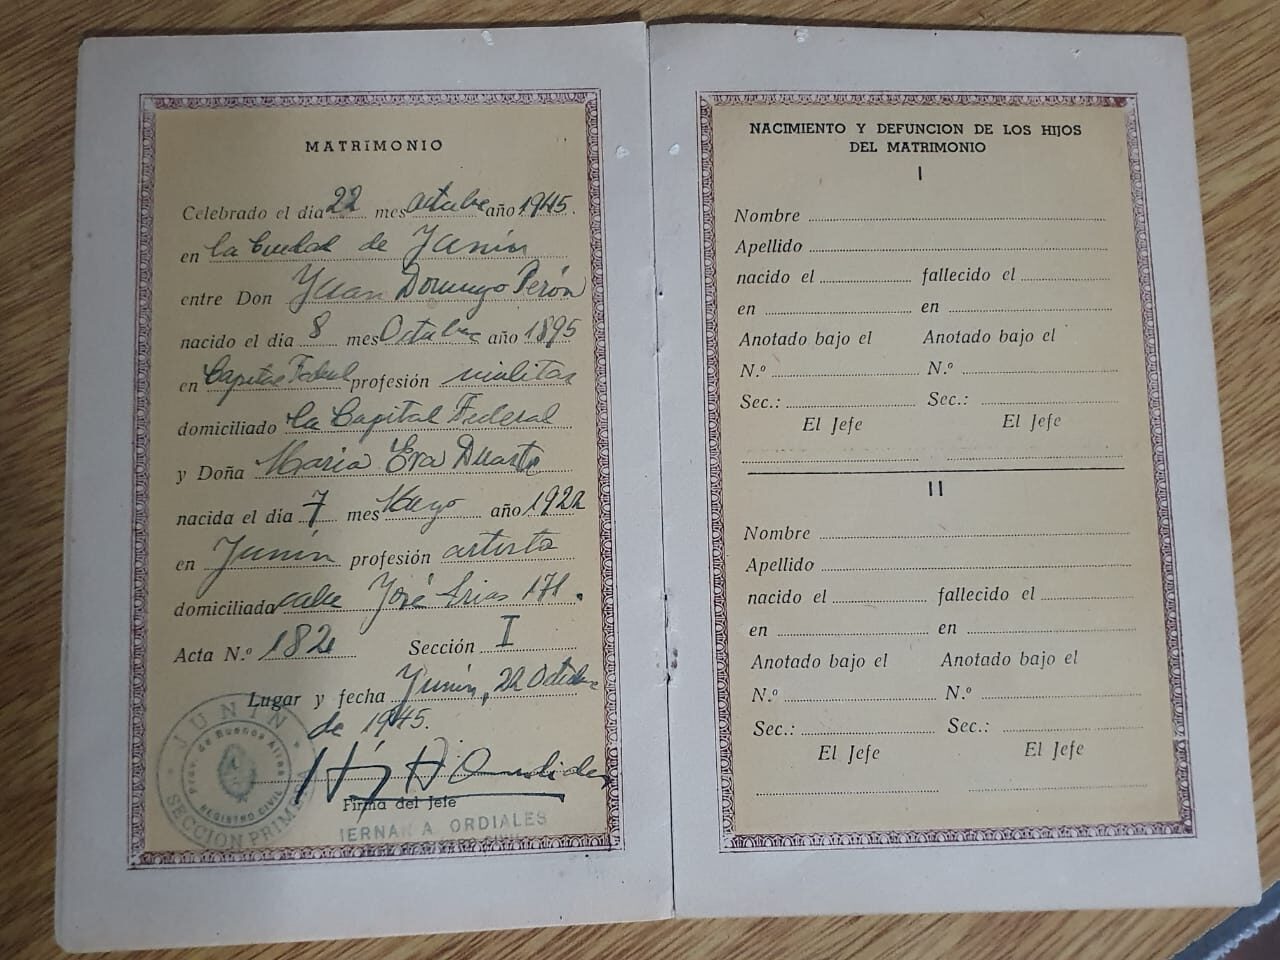 MATRIMONIO
Celebrado el día 22 mes Octubre año 1945.
en la Ciudad de Junín
entre Don Juan Domingo Perón
nacido el día 8 mes Octubre año 1895
en Capital Federal profesión militar
domiciliado la Capital Federal
y Doña María Eva Duarte
nacida el día 7 mes Mayo año 1922
en Junín profesión artista
domiciliada calle José Arias 171.
Acta N.º 182 Sección I
Lugar y fecha Junín, 22 Octubre
de 1945.
Firma del Jefe
HERNAN A. ORDIALES
JUNIN
Prov. de Buenos Aires
REGISTRO CIVIL
SECCION PRIMERA
NACIMIENTO Y DEFUNCION DE LOS HIJOS
DEL MATRIMONIO
I
Nombre
Apellido
nacido el fallecido el
en en
Anotado bajo el Anotado bajo el
N.º N.º
Sec.: Sec.:
El Jefe El Jefe
II
Nombre
Apellido
nacido el fallecido el
en en
Anotado bajo el Anotado bajo el
N.º N.º
Sec.: Sec.:
El Jefe El Jefe